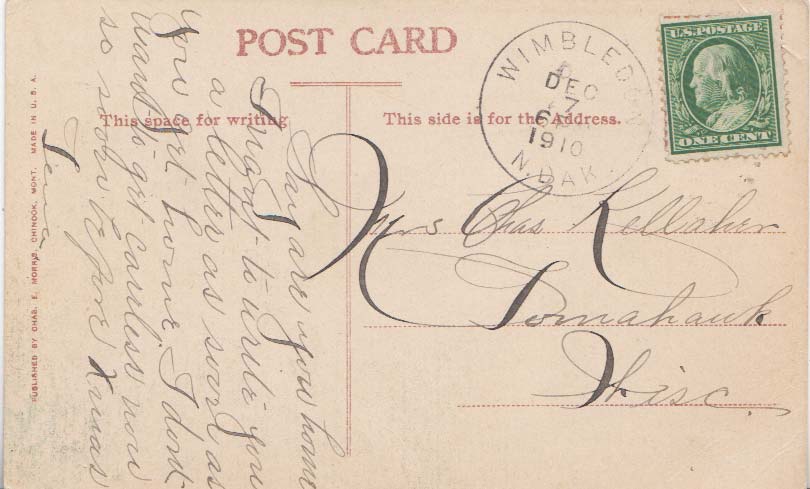 POST CARD
This space for writing
This side is for the Address.
WIMBLEDON
DEC
7
6
1910
N. DAK.
U.S. POSTAGE
ONE CENT
Mrs Chas Kellaher
Tomahawk
Wisc.
Say are you home
I ought to write you
a letter as soon as
you get home. I dont
want to get careless now
so soon before Xmas
Lena
PUBLISHED BY CHAS. E. MORRIS, CHINOOK, MONT. MADE IN U. S. A.